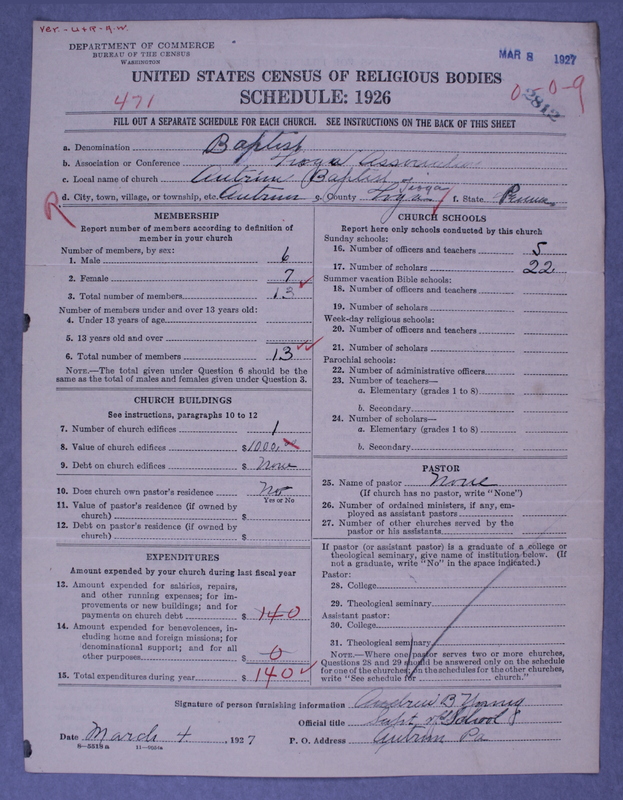 Ver. - U+R - g.w.
DEPARTMENT OF COMMERCE
BUREAU OF THE CENSUS
WASHINGTON
MAR 8 1927
UNITED STATES CENSUS OF RELIGIOUS BODIES
471
SCHEDULE: 1926
0-0-9
2812
FILL OUT A SEPARATE SCHEDULE FOR EACH CHURCH. SEE INSTRUCTIONS ON THE BACK OF THIS SHEET
a. Denomination Baptist
b. Association or Conference Tioga Association
c. Local name of church Antrim Baptist
d. City, town, village, or township, etc. Antrim g. County Tioga Tioga f. State Penna
R
MEMBERSHIP
Report number of members according to definition of
member in your church
Number of members, by sex:
1. Male 6
2. Female 7
3. Total number of members 13
Number of members under and over 13 years old:
4. Under 13 years of age
5. 13 years old and over
6. Total number of members 13
NOTE.—The total given under Question 6 should be the
same as the total of males and females given under Question 3.
CHURCH BUILDINGS
See instructions, paragraphs 10 to 12
7. Number of church edifices 1
8. Value of church edifices $1000.00
9. Debt on church edifices $ None
10. Does church own pastor's residence No
Yes or No
11. Value of pastor's residence (if owned by
church) $
12. Debt on pastor's residence (if owned by
church) $
EXPENDITURES
Amount expended by your church during last fiscal year
13. Amount expended for salaries, repairs,
and other running expenses; for im-
provements or new buildings; and for
payments on church debt $ 140
14. Amount expended for benevolences, in-
cluding home and foreign missions; for
denominational support; and for all
other purposes $ 0
15. Total expenditures during year $ 140
CHURCH SCHOOLS
Report here only schools conducted by this church
Sunday schools:
16. Number of officers and teachers 5
17. Number of scholars 22
Summer vacation Bible schools:
18. Number of officers and teachers
19. Number of scholars
Week-day religious schools:
20. Number of officers and teachers
21. Number of scholars
Parochial schools:
22. Number of administrative officers
23. Number of teachers—
a. Elementary (grades 1 to 8)
b. Secondary
24. Number of scholars—
a. Elementary (grades 1 to 8)
b. Secondary
PASTOR
25. Name of pastor None
(If church has no pastor, write "None")
26. Number of ordained ministers, if any, em-
ployed as assistant pastors
27. Number of other churches served by the
pastor or his assistants
If pastor (or assistant pastor) is a graduate of a college or
theological seminary, give name of institution below. (If
not a graduate, write "No" in the space indicated.)
Pastor:
28. College
29. Theological seminary
Assistant pastor:
30. College
31. Theological seminary
NOTE.—Where one pastor serves two or more churches,
Questions 28 and 29 should be answered only on the schedule
for one of the churches; on the schedules for the other churches,
write "See schedule for church."
Signature of person furnishing information Andrew B Young
Official title Supt. School
Date March 4, 1927 P. O. Address Antrim Pa
8—5519a 11—9904a